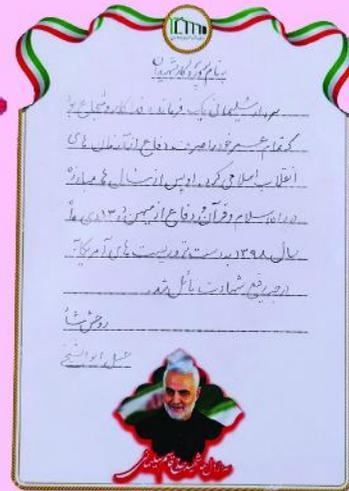 به نام پروردگار شهیدان
سردار سلیمانی یک فرمانده فداکار و شجاع بود
که تمام عمر خود را صرف دفاع از آرمان های
انقلاب اسلامی کرد. او پس از سال ها مبارزه
در راه اسلام و قرآن و دفاع از میهن در ۱۳ دی ماه
سال ۱۳۹۸ به دست تروریست های آمریکا به
درجه رفیع شهادت نائل شد.
روحش شاد
سردار دلها شهید حاج قاسم سلیمانی